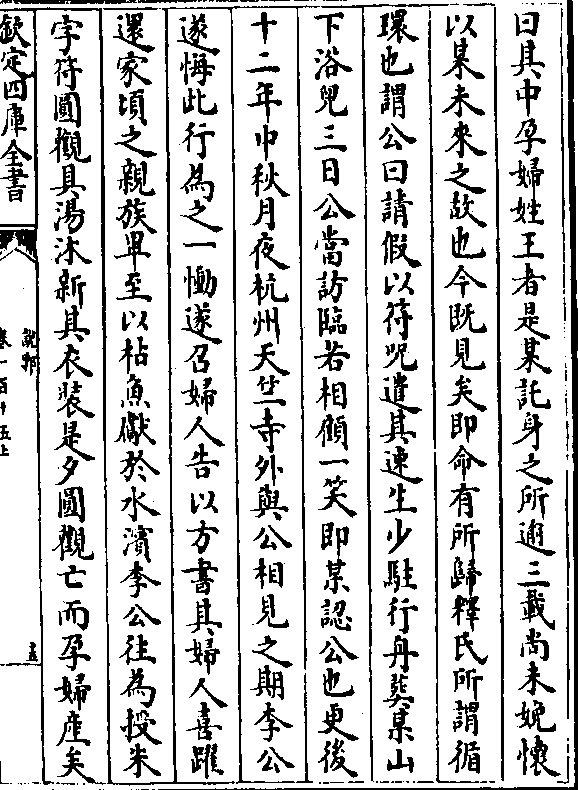 曰其中孕婦姓王者是某託身之所逾三載尚未娩懷
以某未來之故也今既見矣即命有所歸釋氏所謂循
環也謂公曰請假以符咒遣其速生少駐行舟葬某山
下浴兒三日公當訪臨若相顧一笑即某認公也更後
十二年中秋月夜杭州天竺寺外與公相見之期李公
遂悔此行為之一慟遂召婦人告以方書其婦人喜躍
還家頃之親族畢至以枯魚獻於水濱李公往為授朱
字符圓觀具湯沐新其衣裝是夕圓觀亡而孕婦產矣
欽定四庫全書
說郛
卷一百十五上